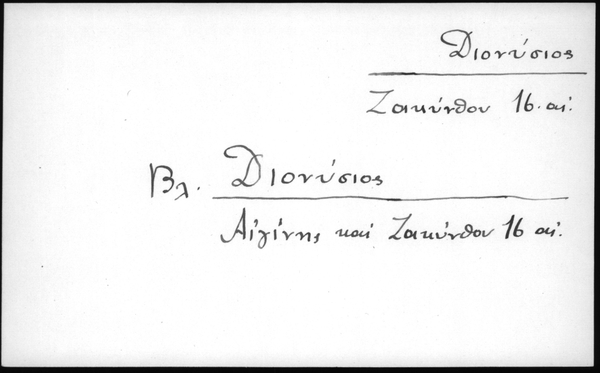 Διονύσιος
Ζακύνθου 16. αἰ.
Βλ. Διονύσιος
Αἰγίνης καὶ Ζακύνθου 16 αἰ.